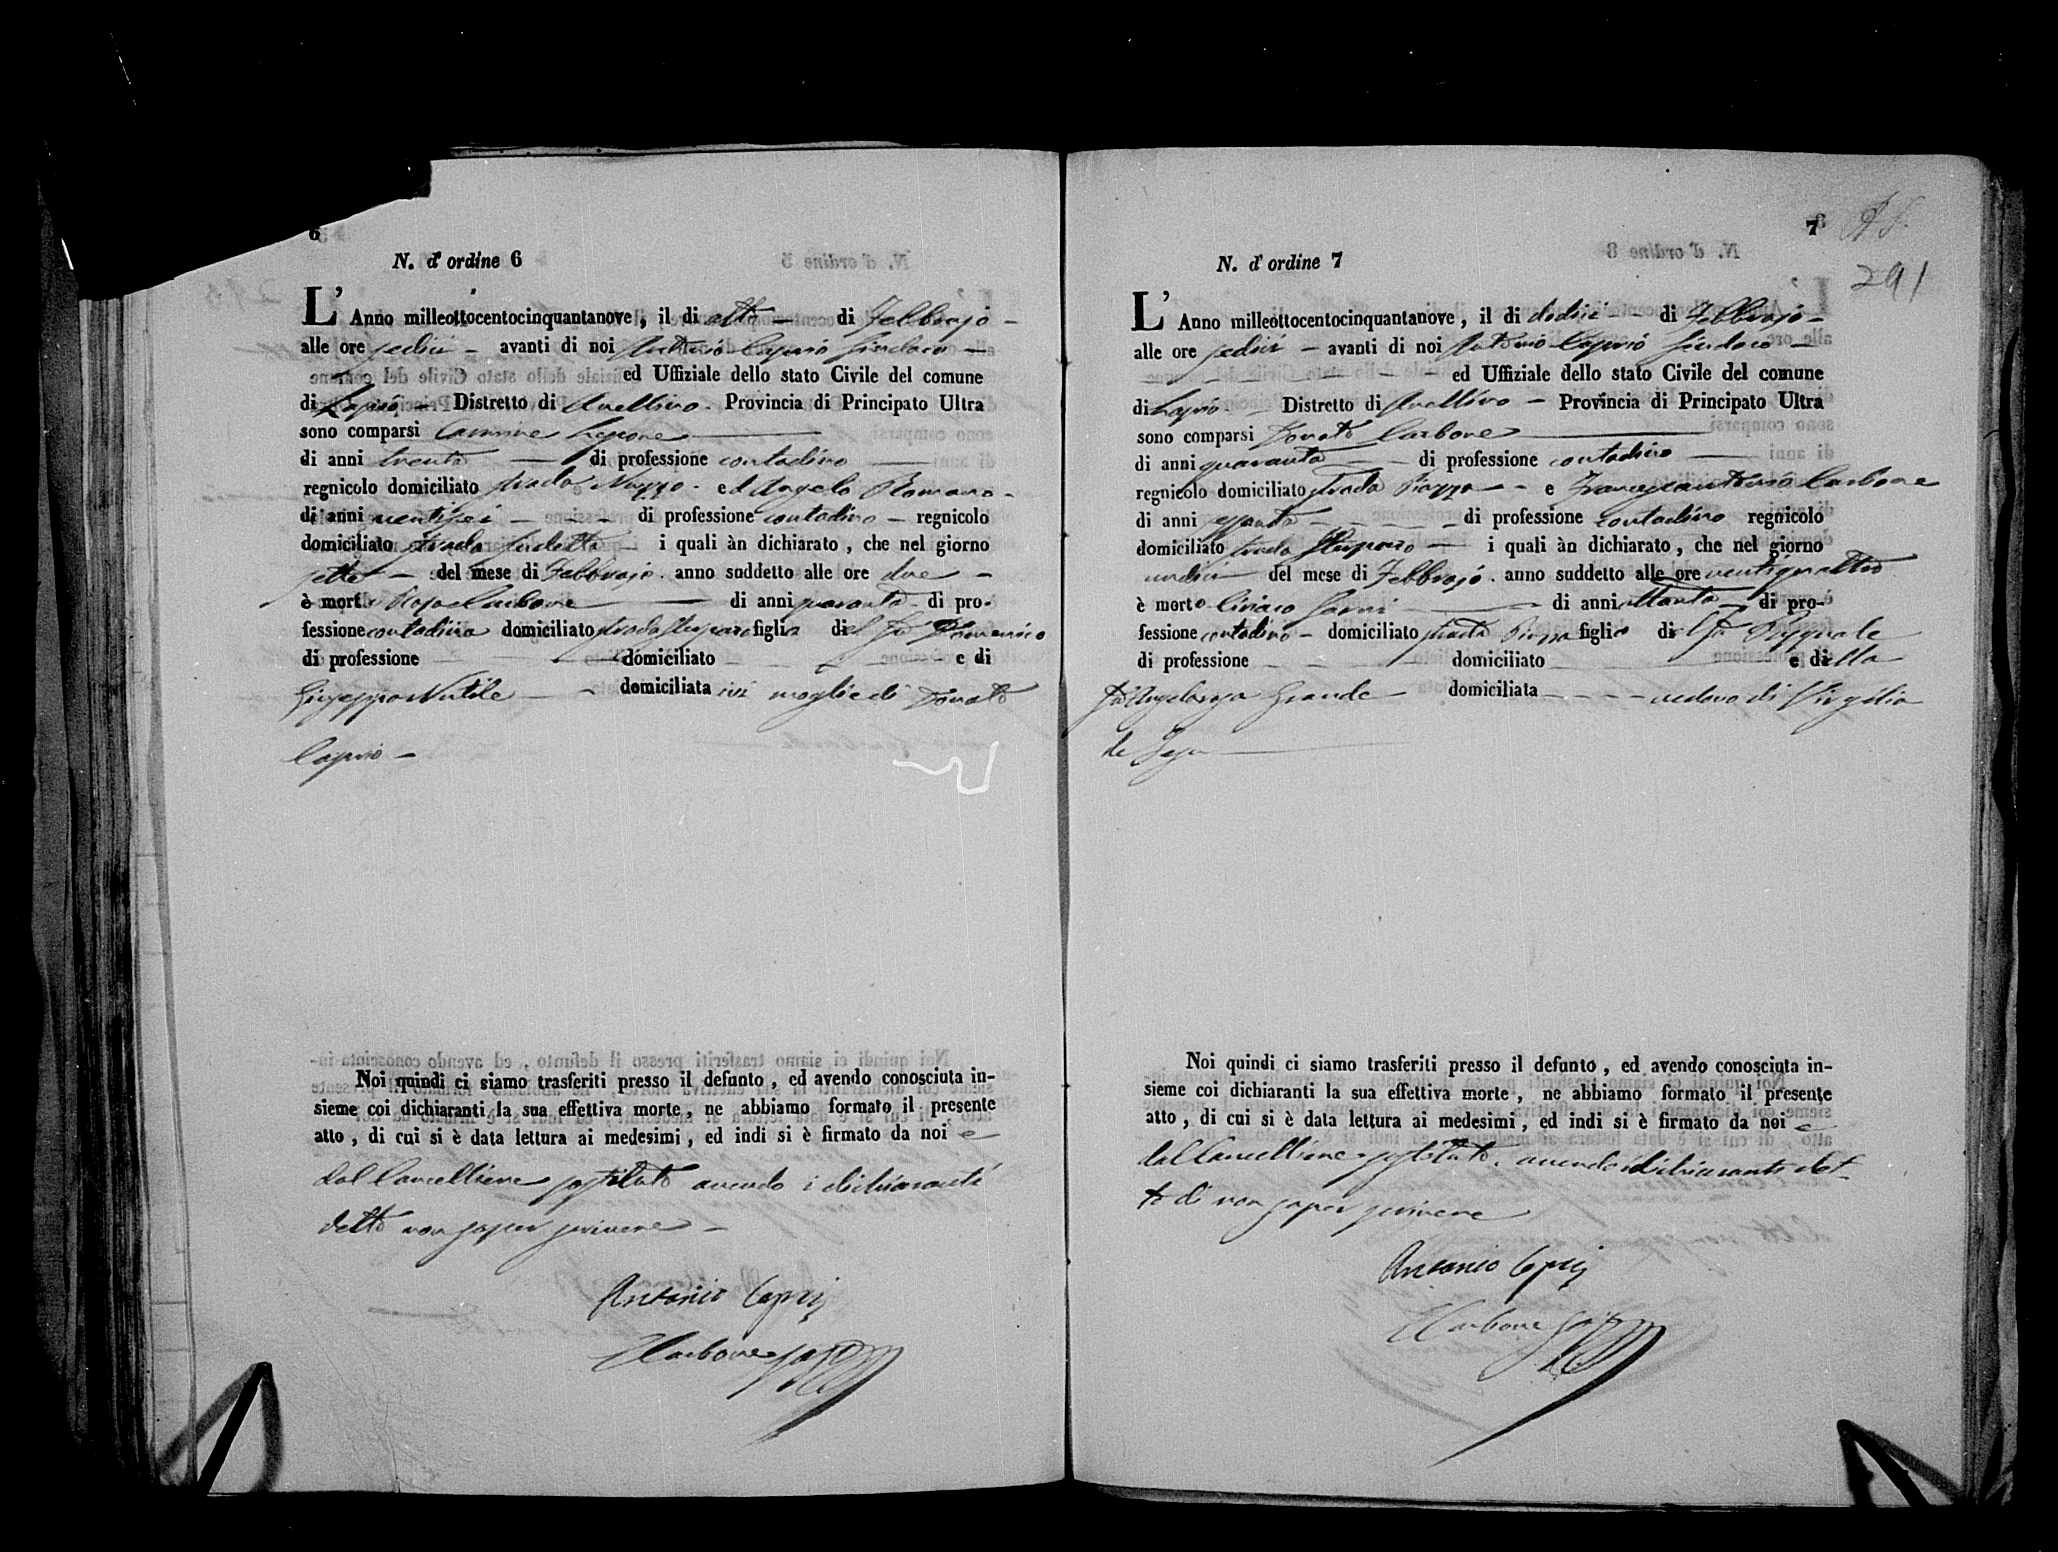 6
N. d' ordine 6
L' Anno milleottocentocinquantanove, il di otto di Febbrajo
alle ore sedici avanti di noi Antonio Caprio Sindaco
ed Uffiziale dello stato Civile del comune
di Lapio Distretto di Avellino. Provincia di Principato Ultra
sono comparsi Carmine
di anni trenta di professione contadino
regnicolo domiciliato strada Nuzzo. ed Angelo Romano
di anni ventisei di professione contadino regnicolo
domiciliato strada sudetta i quali àn dichiarato, che nel giorno
sette del mese di Febbrajo. anno suddetto alle ore due
è morta Rosa Carbone di anni quaranta di pro-
fessione contadina domiciliato strada figlia del fu Domenico
di professione domiciliato e di
Giuseppa Nutile domiciliata ivi moglie di Donato
Caprio
Noi quindi ci siamo trasferiti presso il defunto, ed avendo conosciuta in-
sieme coi dichiaranti la sua effettiva morte, ne abbiamo formato il presente
atto, di cui si è data lettura ai medesimi, ed indi si è firmato da noi e
dal Cancelliere sostituto avendo i dichiaranti
detto non saper scrivere
Antonio Caprio
Carbone
7
291
N. d' ordine 7
L' Anno milleottocentocinquantanove, il di dodici di Febbrajo
alle ore sedici avanti di noi Antonio Caprio Sindaco
ed Uffiziale dello stato Civile del comune
di Lapio Distretto di Avellino Provincia di Principato Ultra
sono comparsi Donato Carbone
di anni quaranta di professione contadino
regnicolo domiciliato strada Piazza e Francescantonio Carbone
di anni di professione contadino regnicolo
domiciliato strada i quali àn dichiarato, che nel giorno
undici del mese di Febbrajo. anno suddetto alle ore ventiquattro
è morto Ciriaco di anni ottanta di pro-
fessione contadino domiciliato strada Piazza figlio del fu Pasquale
di professione domiciliato e della
fu Angelarosa Grande domiciliata vedovo di Virgilia
de
Noi quindi ci siamo trasferiti presso il defunto, ed avendo conosciuta in-
sieme coi dichiaranti la sua effettiva morte, ne abbiamo formato il presente
atto, di cui si è data lettura ai medesimi, ed indi si è firmato da noi e
dal Cancelliere sostituto. avendo i dichiaranti det-
to di non saper scrivere
Antonio Caprio
Carbone